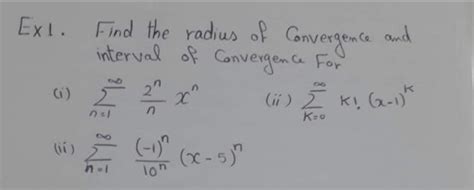 Ex1. Find the radius of Convergence and
interval of Convergence For
(i) ∞ ∑ n=1 2^n/n x^n (ii) ∞ ∑ K=0 K! (x-1)^K
(ii) ∞ ∑ n=1 (-1)^n/10^n (x-5)^n